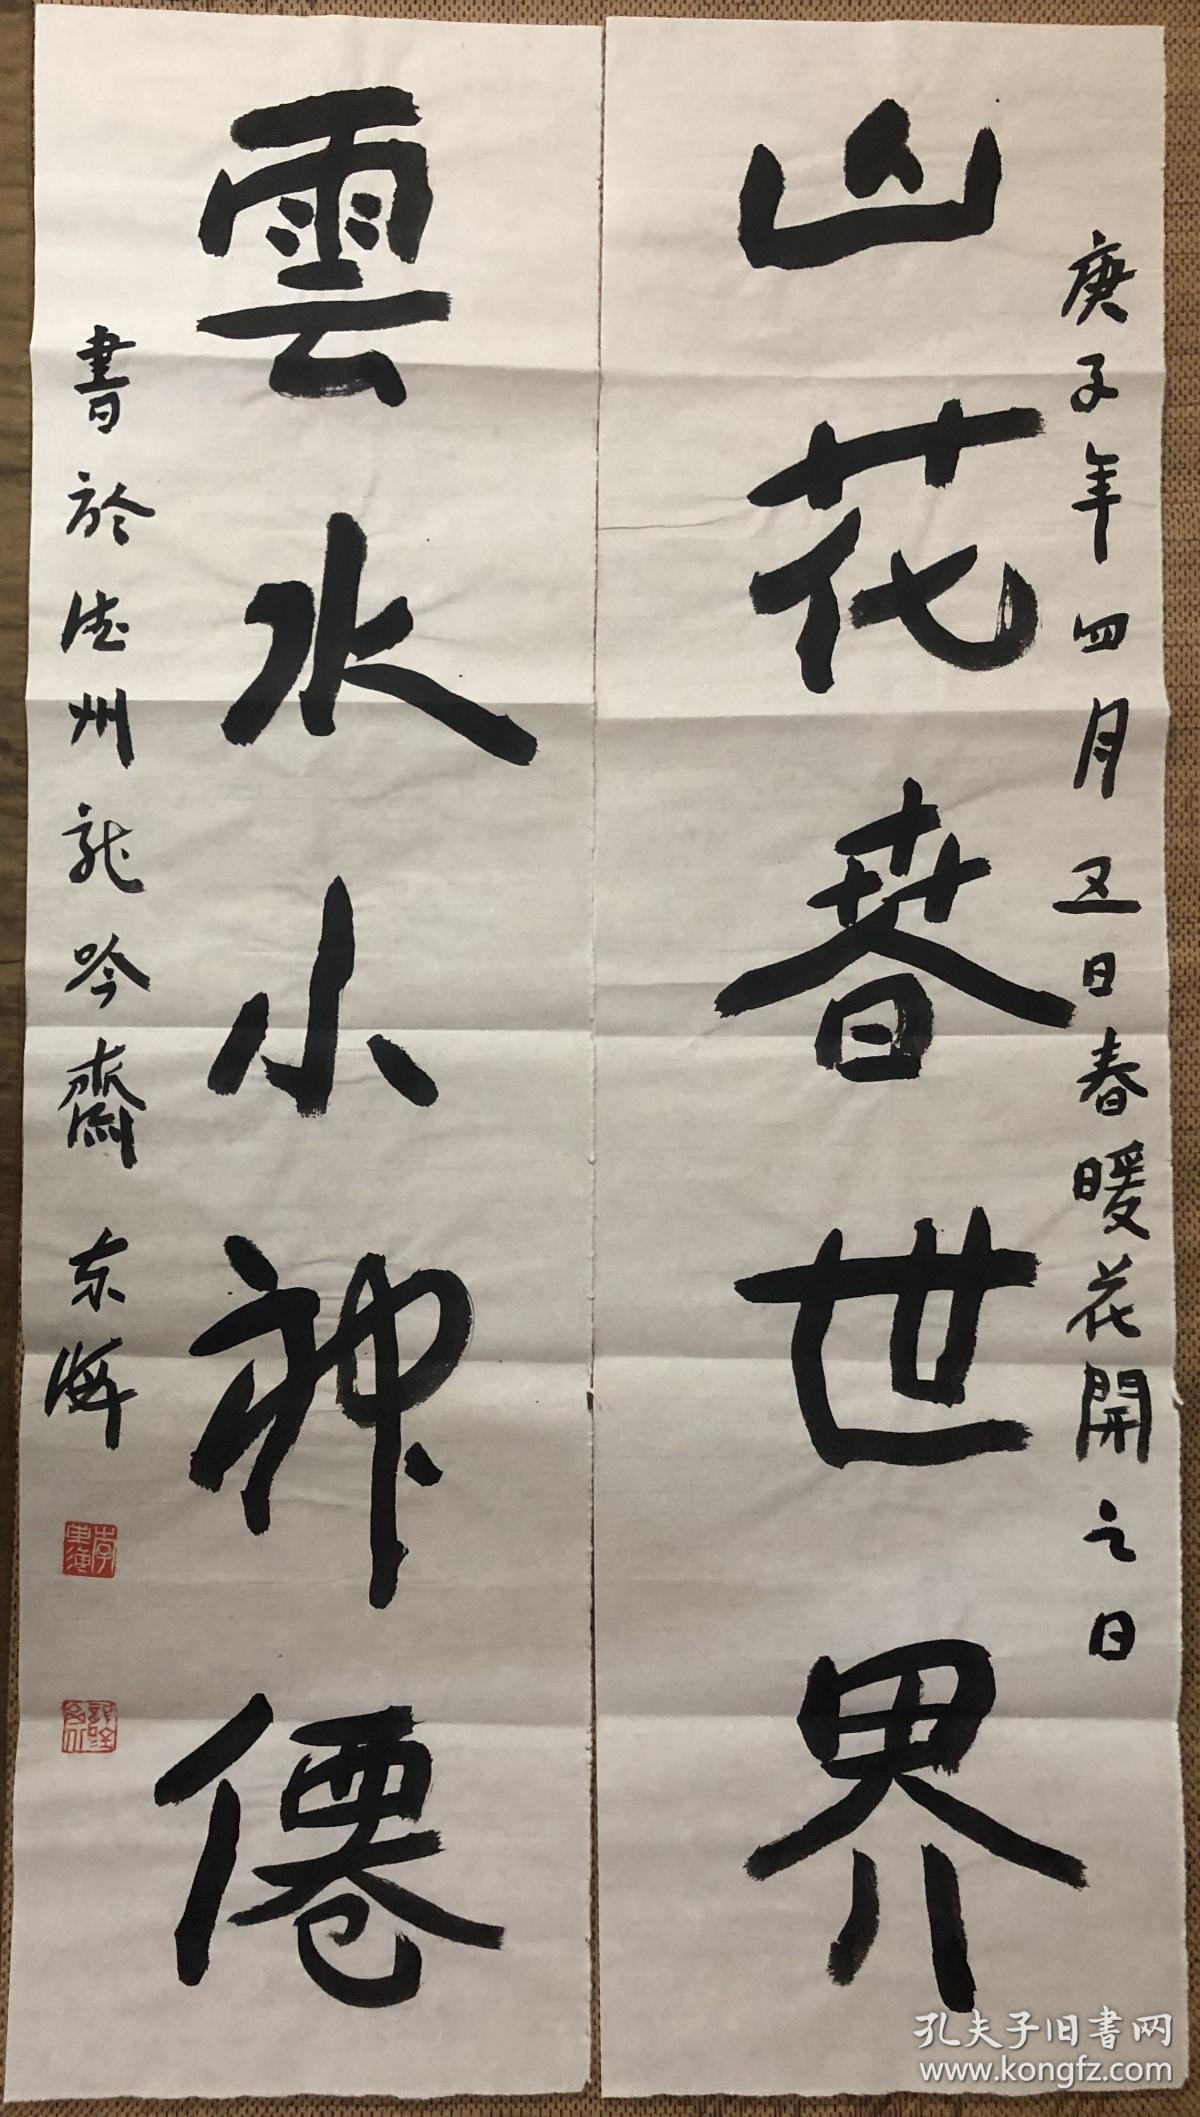 庚子年四月五日春暖花開之日
山花春世界
雲水小神僊
書於德州龙吟齋 东海
李东海
孔夫子旧书网
www.kongfz.com